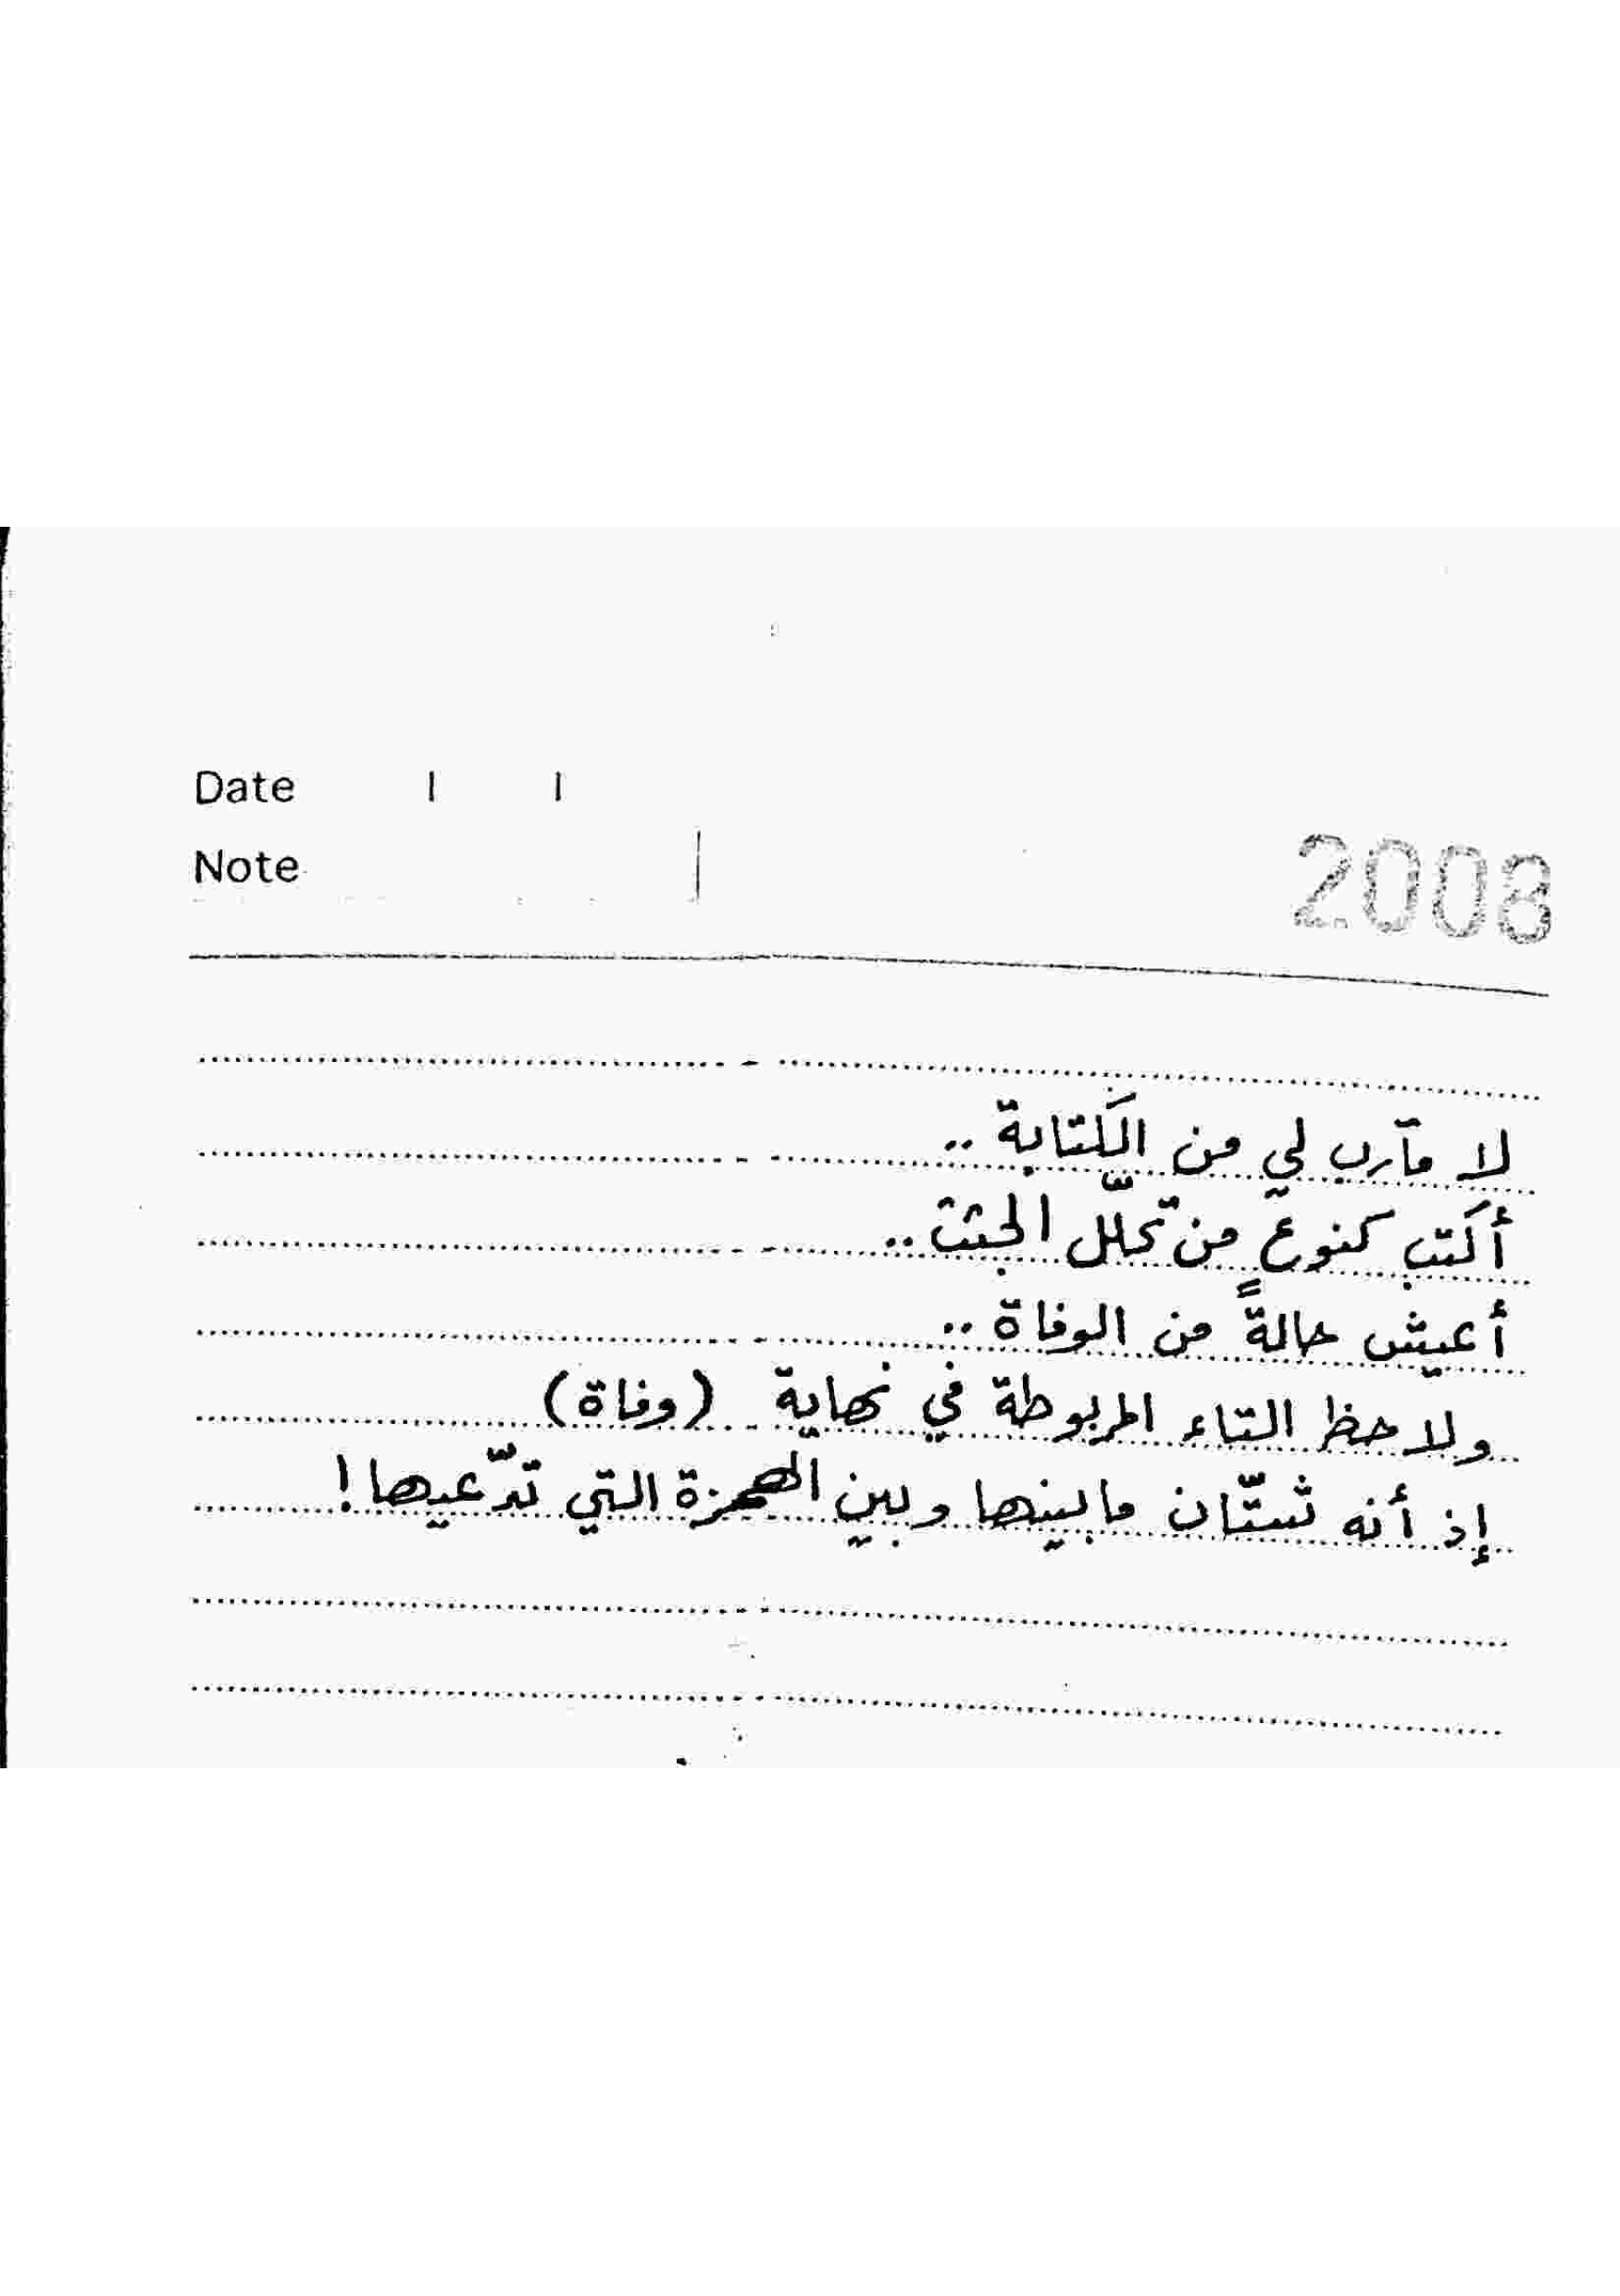 Date / /
Note
2008
لا مآرب لي من الكتابة ..
أكتب كنوعٍ من تحلّل الجثث ..
أعيش حالةً من الوفاة ..
ولاحظ التاء المربوطة في نهاية (وفاة)
إذ أنه شتّان ما بينها وبين الهمزة التي تدّعيها !